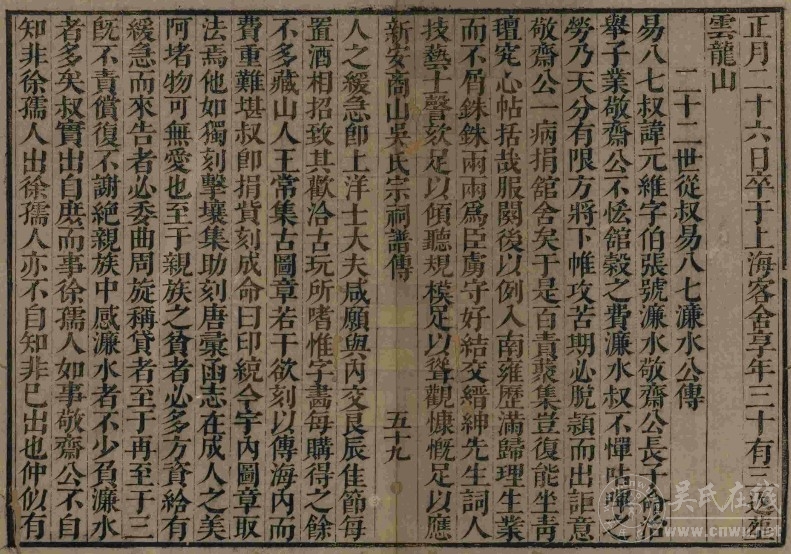 正月二十六日卒于上海客舍享年三十有三返葬
雲龍山
二十二世從叔易八七濂水公傳
易八七叔諱元維字伯張號濂水敬齋公長子命治
舉子業敬齋公不恡舘榖之費濂水叔不憚呫嗶之
勞乃天分有限方將下帷攻苦期必脫頴而出詎意
敬齋公一病捐舘舍矣于是百責褱集豈復能坐靑
氊究心帖括哉服闋後以例入南雍歷滿歸理生業
而不屑銖銖兩兩爲臣虜守好結交縉紳先生詞人
技藝士謦欬足以傾聽規模足以聳觀慷慨足以應
新安商山吳氏宗祠譜傳 五十九
人之緩急卽上洋士大夫咸願與內交良辰佳節每
置酒相招致其歡洽古玩所嗜惟字畵每購得之餘
不多藏山人王常集古圖章若干欲刻以傳海內而
費重難堪叔卽捐貲刻成命曰印統今宇內圖章取
法焉他如獨刻擊壤集助刻唐彙函志在成人之美
阿堵物可無愛也至于親族之貧者必多方資給有
緩急而來告者必委曲周旋稱貸者至于再至于三
旣不責償復不謝絶親族中感濂水者不少負濂水
者多矣叔實出自庶而事徐孺人如事敬齋公不自
知非徐孺人出徐孺人亦不自知非巳出也仲似有
吴氏在线
www.cnwu.net